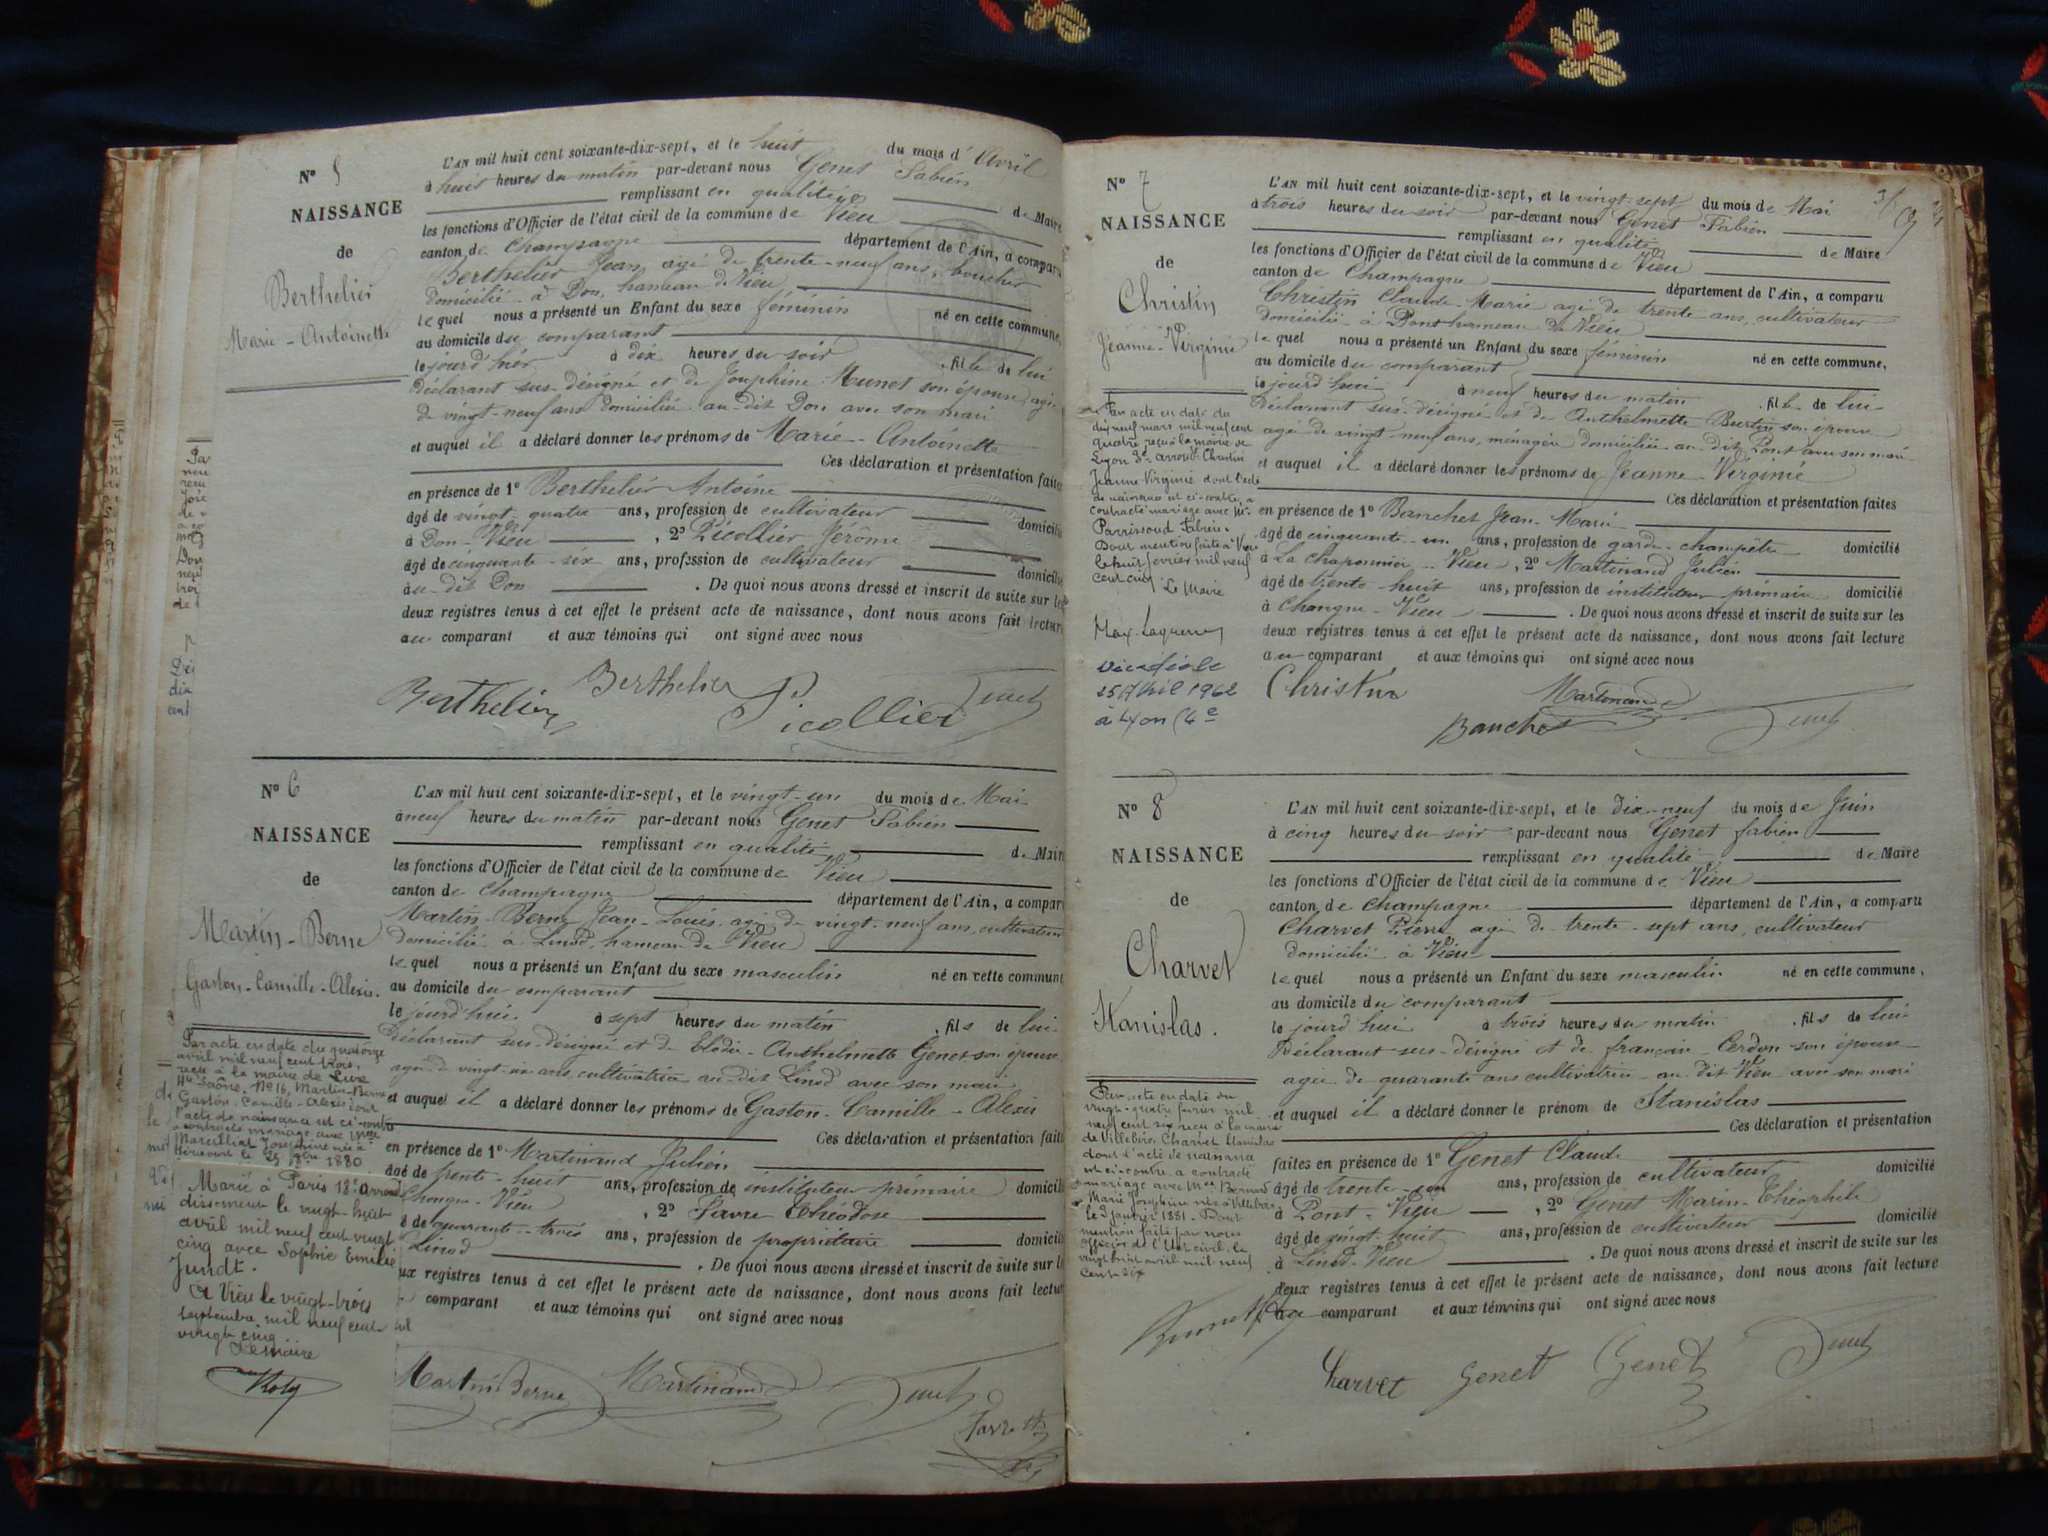 N° 5
NAISSANCE
de
Berthelier
Marie-Antoinette
L'AN mil huit cent soixante-dix-sept, et le huit du mois d'Avril
à huit heures du matin par-devant nous Genet Fabien
remplissant en qualité de Maire
les fonctions d'Officier de l'état civil de la commune de Vieu
canton de Champagne département de l'Ain, a comparu
Berthelier Jean agé de trente-neuf ans, boucher
domicilié à Don, hameau de Vieu
lequel nous a présenté un Enfant du sexe féminin né en cette commune,
au domicile du comparant
le jourd'hier à dix heures du soir, fille de lui
Déclarant sus-désigné et de Joséphine Munet son épouse, agée
de vingt-neuf ans domiciliée au-dit Don avec son mari
et auquel il a déclaré donner les prénoms de Marie-Antoinette
Ces déclaration et présentation faites
en présence de 1° Berthelier Antoine
âgé de vingt-quatre ans, profession de cultivateur domicilié
à Don-Vieu, 2° Picollier Jérôme
âgé de cinquante-six ans, profession de cultivateur domicilié
au dit Don. De quoi nous avons dressé et inscrit de suite sur les
deux registres tenus à cet effet le présent acte de naissance, dont nous avons fait lecture
au comparant et aux témoins qui ont signé avec nous
Berthelier Berthelier Picollier Genet
N° 6
NAISSANCE
de
Martin-Berne
Gaston-Camille-Alexis.
Par acte en date du quatorze
avril mil neuf cent trois,
reçu à la mairie de Lure
Hte Saône, N° 16, Martin-Berne
Gaston-Camille-Alexis dont
l'acte de naissance est ci-contre
a contracté mariage avec Melle
Joséphine née à
Héricourt le 1880
Marié à Paris 18e arron
dissement le vingt-huit
avril mil neuf cent vingt
cinq avec Sophie Emilie
Jundt.
A Vieu le vingt-trois
septembre mil neuf cent
vingt cinq
Le Maire
L'AN mil huit cent soixante-dix-sept, et le vingt-un du mois de Mai
à neuf heures du matin par-devant nous Genet Fabien
remplissant en qualité de Maire
les fonctions d'Officier de l'état civil de la commune de Vieu
canton de Champagne département de l'Ain, a comparu
Martin-Berne Jean-Louis agé de vingt-neuf ans, cultivateur
domicilié à Linod, hameau de Vieu
lequel nous a présenté un Enfant du sexe masculin né en cette commune
au domicile du comparant
le jourd'hui à sept heures du matin, fils de lui
Déclarant sus-désigné et de Elodie-Anthelmette Genet son épouse
agée de vingt-un ans cultivatrice au-dit Linod avec son mari
et auquel il a déclaré donner les prénoms de Gaston-Camille-Alexis
Ces déclaration et présentation faites
en présence de 1° Martinand Julien
âgé de trente-huit ans, profession de instituteur primaire domicilié
Chongne-Vieu, 2° Favre Théodose
é de quarante-trois ans, profession de propriétaire domicilié
Linod. De quoi nous avons dressé et inscrit de suite sur l
ux registres tenus à cet effet le présent acte de naissance, dont nous avons fait lecture
comparant et aux témoins qui ont signé avec nous
Martin Berne Martinand Genet
Favre Th
N° 7
NAISSANCE
de
Christin
Jeanne-Virginie
Par acte en date du
dix neuf mars mil neuf cent
quatre reçu à la mairie de
Lyon 3e arrondt Christin
Jeanne Virginie dont l'acte
de naissance est ci-contre, a
contracté mariage avec Mr
Parrissoud Fabien.
Dont mention faite à Vieu
le huit février mil neuf
cent cinq Le Maire
décédée le
25 Avril 1962
à Lyon (4e
L'AN mil huit cent soixante-dix-sept, et le vingt-sept du mois de Mai
à trois heures du soir par-devant nous Genet Fabien
remplissant en qualité de Maire
les fonctions d'Officier de l'état civil de la commune de Vieu
canton de Champagne département de l'Ain, a comparu
Christin Claude-Marie agé de trente ans, cultivateur
domicilié à Pont hameau de Vieu
lequel nous a présenté un Enfant du sexe féminin né en cette commune,
au domicile du comparant
le jourd'hui à neuf heures du matin, fille de lui
Déclarant sus-désigné et de Anthelmette Burtin son épouse
agée de vingt-neuf ans, ménagère domiciliée au-dit Pont avec son mari
et auquel il a déclaré donner les prénoms de Jeanne-Virginie
Ces déclaration et présentation faites
en présence de 1° Banchet Jean-Marie
âgé de cinquante-un ans, profession de garde-champêtre domicilié
à La Chaponnière-Vieu, 2° Martinand Julien
âgé de trente-huit ans, profession de instituteur primaire domicilié
à Chongne-Vieu. De quoi nous avons dressé et inscrit de suite sur les
deux registres tenus à cet effet le présent acte de naissance, dont nous avons fait lecture
au comparant et aux témoins qui ont signé avec nous
Christin Martinand
Banchet Genet
N° 8
NAISSANCE
de
Charvet
Stanislas.
Par acte en date du
vingt-quatre février mil
neuf cent six reçu à la mairie
de Villebois, Charvet Stanislas
dont l'acte de naissance
est ci-contre a contracté
mariage avec Melle Bernard
Marie Joséphine née à Villebois
le 2 janvier 1881. Dont
mention faite par nous
officier de l'état civil, le
vingt huit avril mil neuf
cent six
L'AN mil huit cent soixante-dix-sept, et le Dix-neuf du mois de Juin
à cinq heures du soir par-devant nous Genet fabien
remplissant en qualité de Maire
les fonctions d'Officier de l'état civil de la commune de Vieu
canton de Champagne département de l'Ain, a comparu
Charvet Pierre agé de trente-sept ans, cultivateur
domicilié à Vieu
lequel nous a présenté un Enfant du sexe masculin né en cette commune,
au domicile du comparant
le jourd'hui à trois heures du matin, fils de lui
Déclarant sus-désigné et de françoise Cerdon son épouse
agée de quarante ans cultivatrice au dit Vieu avec son mari
et auquel il a déclaré donner le prénom de Stanislas
Ces déclaration et présentation
faites en présence de 1° Genet Claude
âgé de trente-un ans, profession de cultivateur domicilié
à Pont-Vieu, 2° Genet Marin-Théophile
âgé de vingt-huit ans, profession de cultivateur domicilié
à Linod-Vieu. De quoi nous avons dressé et inscrit de suite sur les
deux registres tenus à cet effet le présent acte de naissance, dont nous avons fait lecture
au comparant et aux témoins qui ont signé avec nous
Charvet Genet Genet Genet